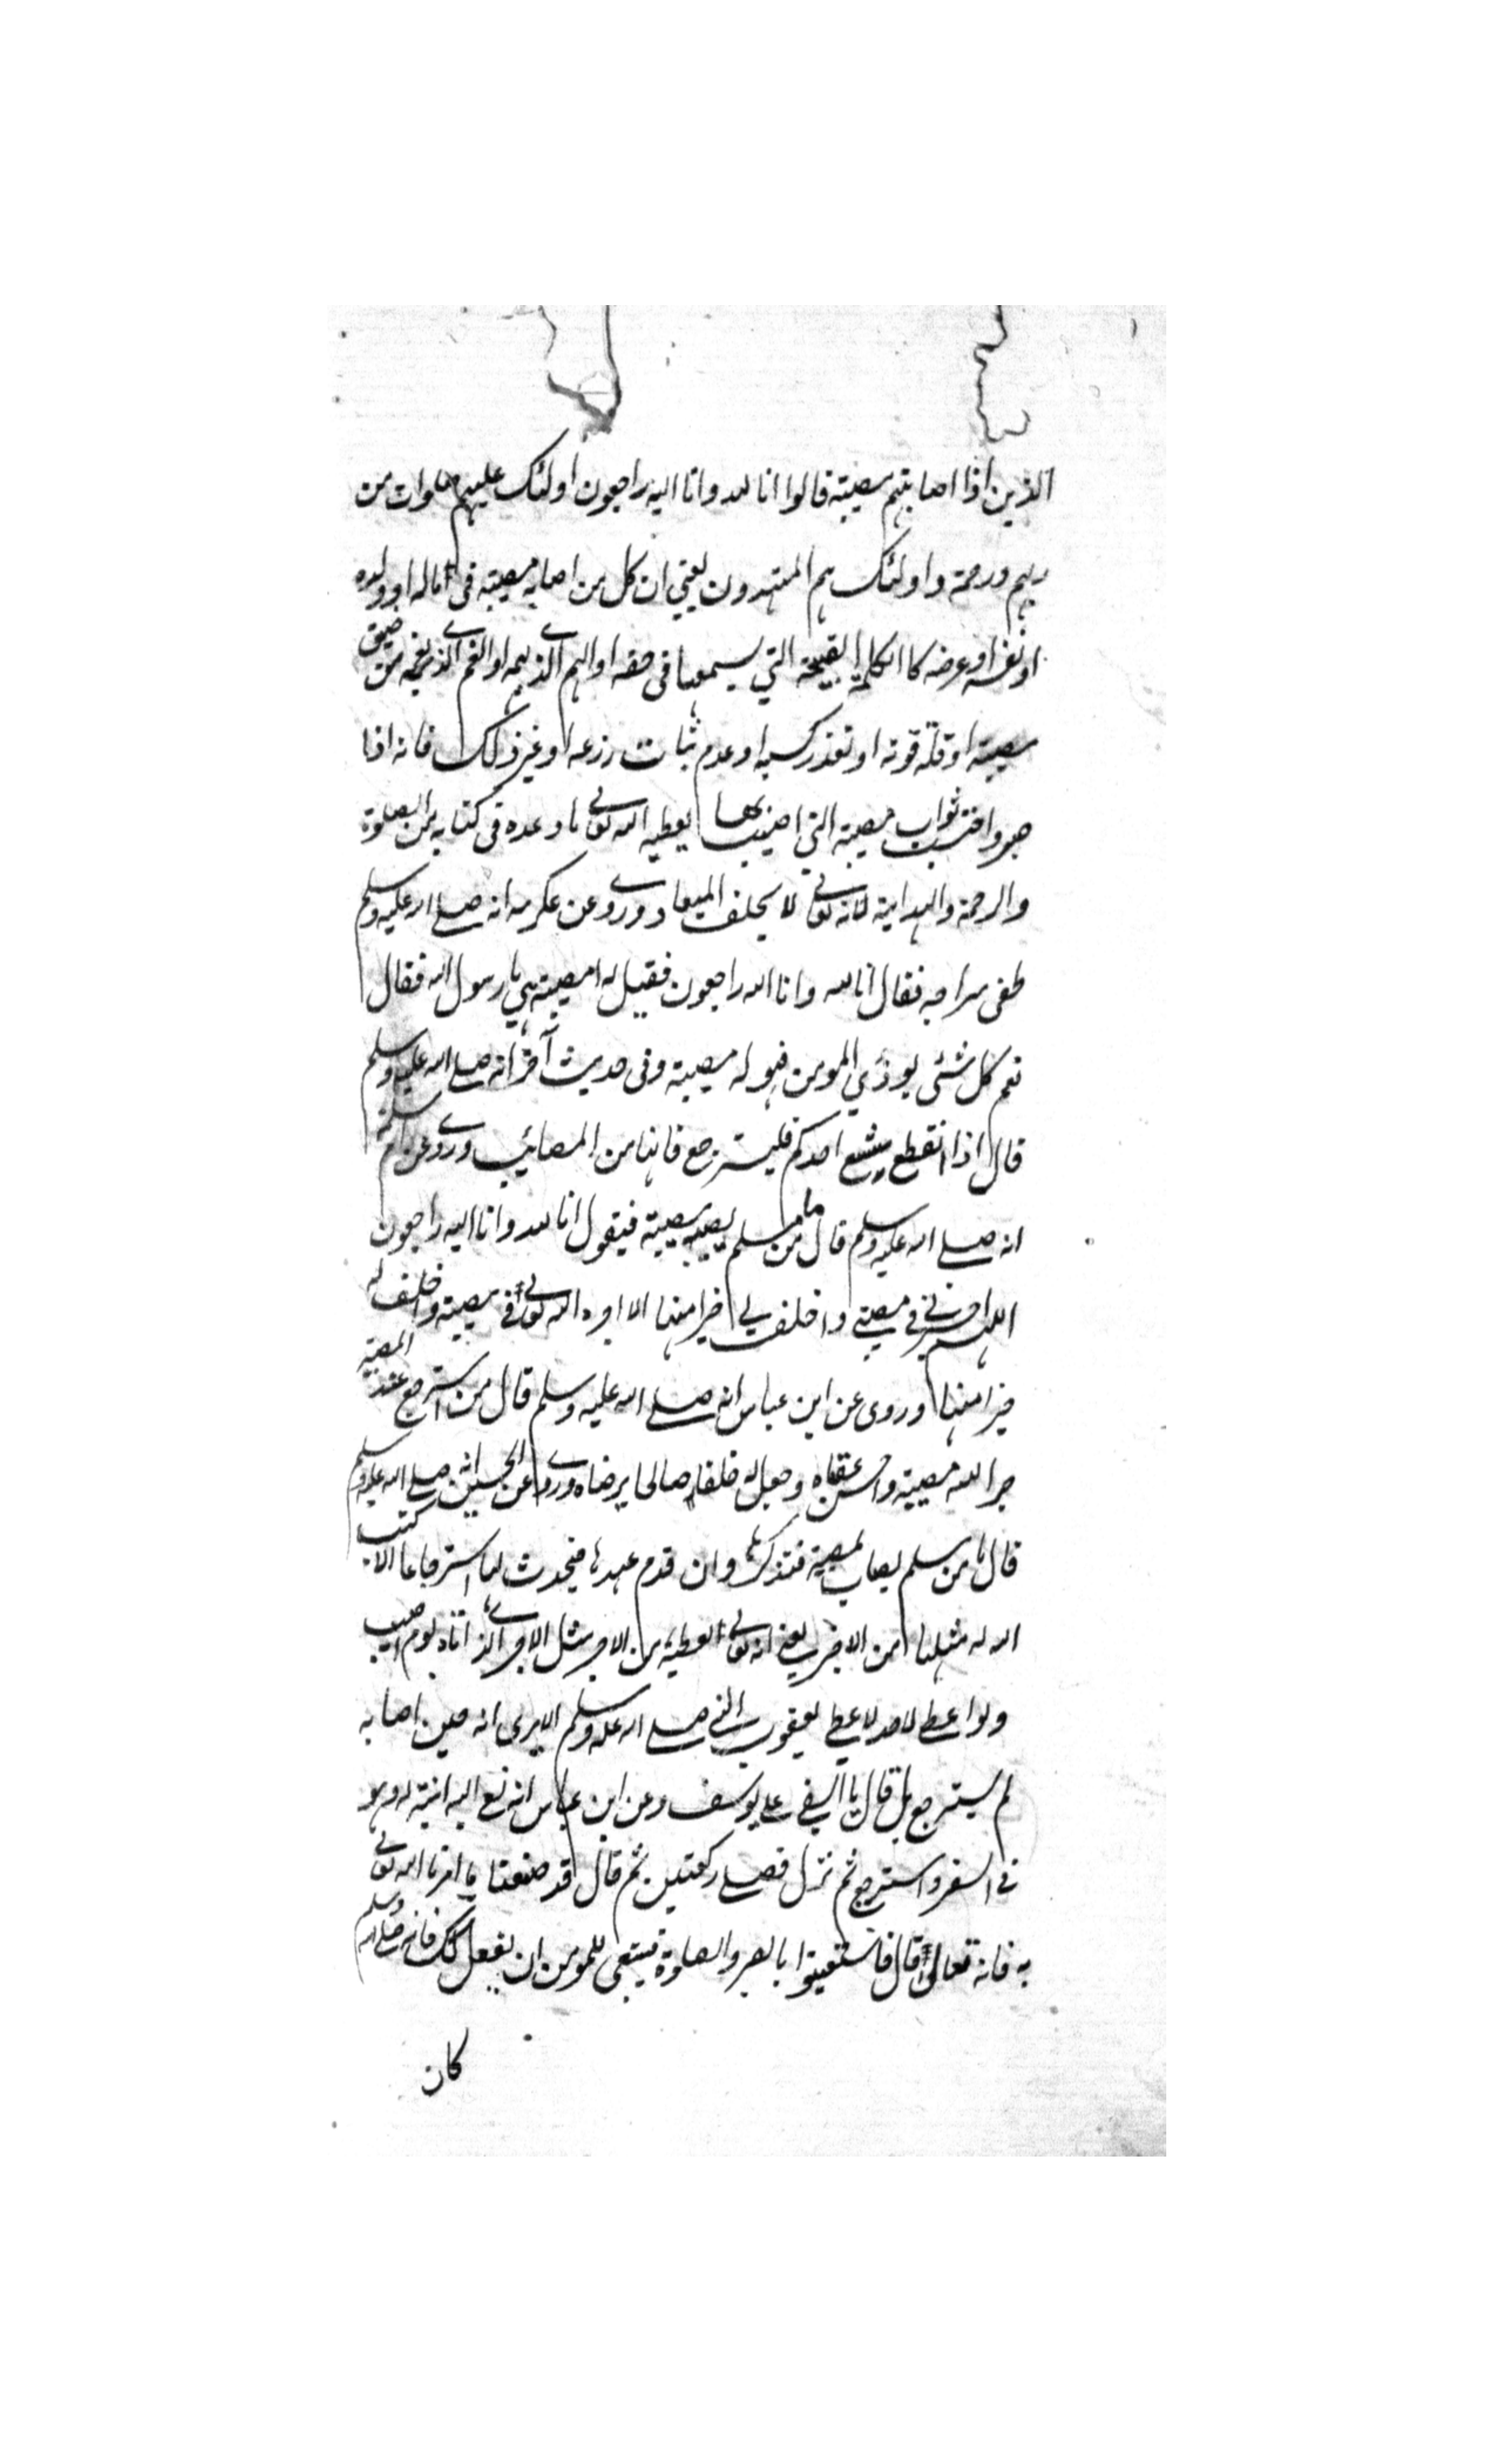 الذين اذا اصابتهم مصيبة قالوا انا لله وانا اليه راجعون اولئك عليهم صلوات من
ربهم ورحمة واولئك هم المهتدون يعني ان كل من اصابه مصيبة فى ماله او ولده
او نفسه او عرضه كا الكلمة القبيحة التي يسمعها فى حقه او الهم الذي يهمه او الغم الذي يغمه من ضيق
مصيبة او قلة قوته او تعذر كسبه او عدم ثبات زرعه او غير ذلك فانه اذا
صبر واحتسب ثواب مصيبة التي اصيب بها يعطيه الله تعالى ما وعده فى كتابه من الصلوة
والرحمة والهداية لانه تعالى لا يخلف الميعاد وروى عن عكرمه انه صلى الله عليه وسلم
طفى سراجه فقال انا لله وانا اليه راجعون فقيل له امصيبة هي يا رسول الله فقال
نعم كل شئ يوذي المومن فهو له مصيبة وفى حديث آخر انه صلى الله عليه وسلم
قال اذا انقطع شسع احدكم فليسترجع فانها من المصائب وروى عن ام سلمة
انه صلى الله عليه وسلم قال ما من مسلم يصيبه مصيبة فيقول انا لله وانا اليه راجعون
اللهم اجرني في مصيبتي واخلف لي خيرا منها الا اجره الله تعالى فى مصيبة واخلف له
خيرا منها وروى عن ابن عباس انه صلى الله عليه وسلم قال من استرجع عند المصيبة
جبر الله مصيبة واحسن عقباه وجعل له خلفا صالحا يرضاه وروى عن الحسين انه صلى الله عليه وسلم
قال ما من مسلم يصاب لمصيبة فتذكرها وان قدم عهدها فيحدث لها استرجاعا الا كتب
الله له مثلها من الاجر يعني انه تعالى يعطيه من الاجر مثل الاجر الذي اتاه يوم اصيب
ولو اعطي لاحد لاعطي يعقوب النبي صلى الله عليه وسلم الا يرى انه حين اصابه
لم يسترجع بل قال يا اسفى على يوسف وعن ابن عباس انه نعي اليه ابنية له وهو
في السفر واسترجع ثم نزل فصلى ركعتين ثم قال قد صنعنا ما امرنا الله تعالى
به فانه تعالى قال فاستعينوا بالصبر والصلوة فينبغى للمومن ان يفعل ذلك فانه صلى الله وسلم
كان